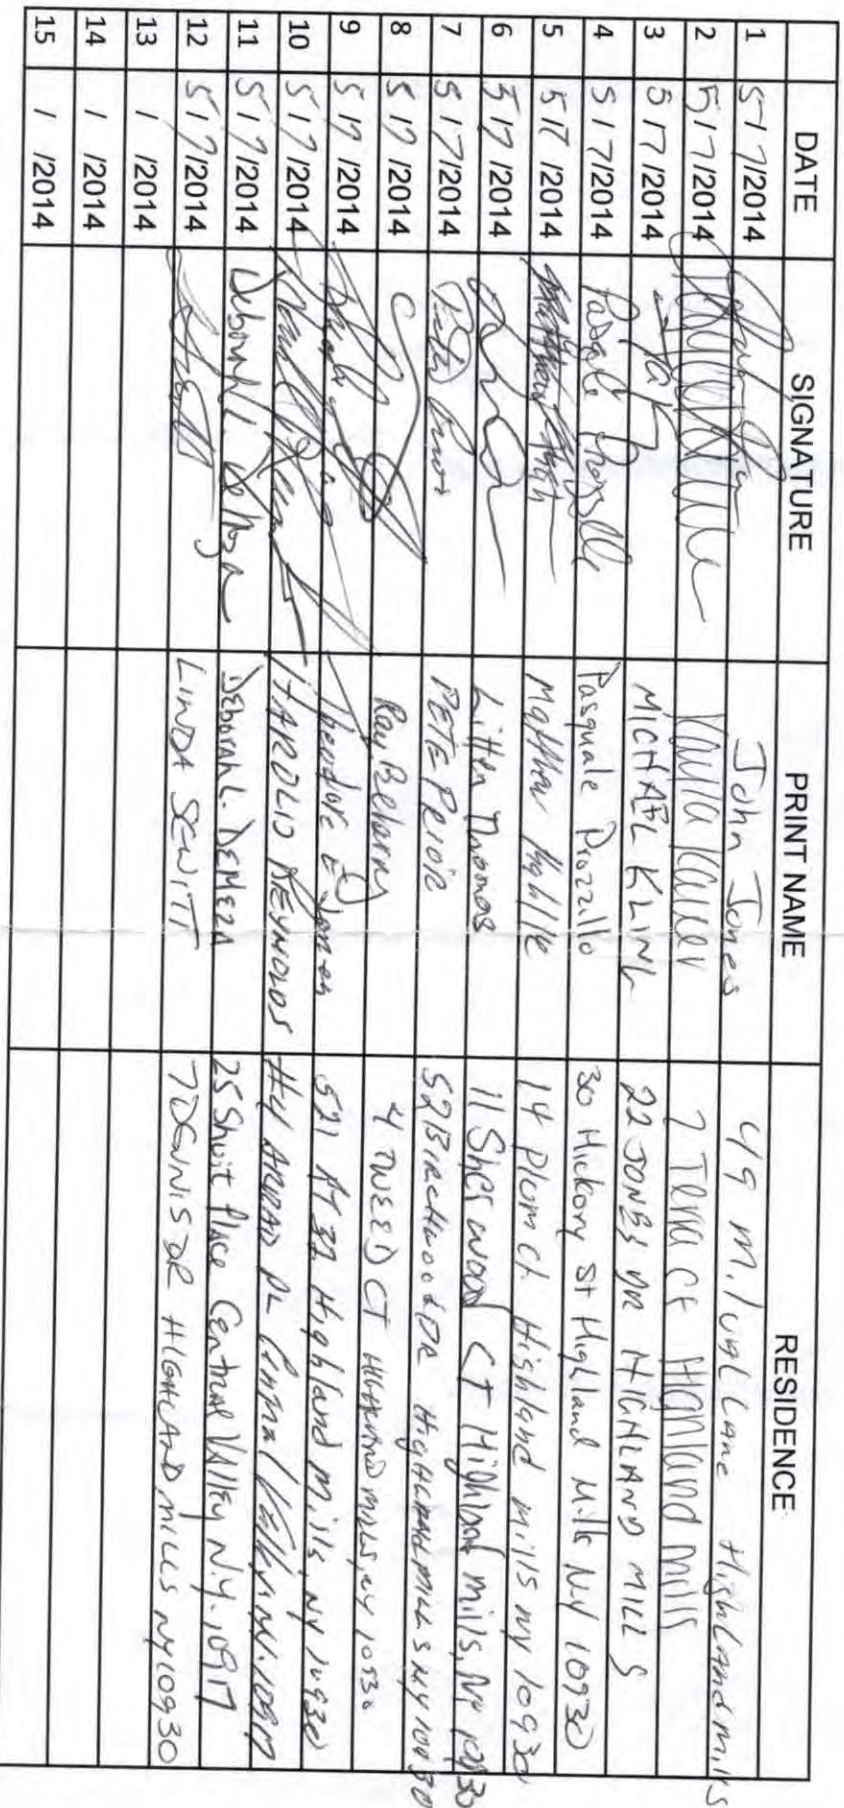 DATE SIGNATURE PRINT NAME RESIDENCE
1 5/7/2014 John Jones 49 Highland Mills
2 5/7/2014 Kayla 7 Tena Ct Highland Mills
3 5/7/2014 MICHAEL KLING 22 JONES DR HIGHLAND MILLS
4 5/7/2014 Pasquale Piozzillo 30 Hickory St Highland Mills NY 10930
5 5/7/2014 Matthew 14 Plum Ct. Highland Mills NY 10930
6 5/7/2014 Thomas 11 Sherwood CT Highland Mills, NY 10930
7 5/7/2014 PETE PRIOR 52 BIRCHWOOD DR HIGHLAND MILLS NY 10930
8 5/7/2014 Ray 4 TWEED CT HIGHLAND MILLS, NY 10930
9 5/7/2014 Theodore E Jones 521 RT 32 Highland Mills, NY 10930
10 5/7/2014 HAROLD REYNOLDS PL Central Valley NY. 10917
11 5/7/2014 Deborah L. DeMeza Deborah L. DEMEZA 25 Shuit Place Central Valley N.Y. 10917
12 5/7/2014 LINDA SEWITT 7 DENNIS DR HIGHLAND MILLS NY 10930
13 / /2014
14 / /2014
15 / /2014